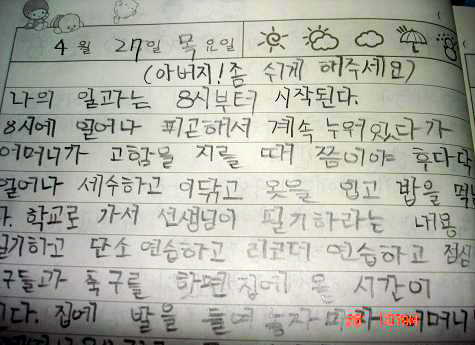 4월 27일 목요일
(아버지!좀 쉬게 해주세요)
나의 일과는 8시부터 시작된다.
8시에 일어나 피곤해서 계속 누워있다가
어머니가 고함을 지를 때 쯤이야 후다닥
일어나 세수하고 이닦고 옷을 입고 밥을
학교로 가서 선생님이 필기하라는 내용
필기하고 단소 연습하고 리코더 연습하고 점심
구들과 축구를 하면 집에 올 시간이
다. 집에 발을 들여 어머니